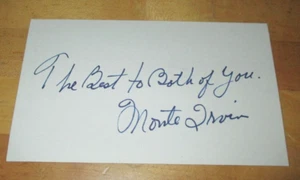 The Best to Both of You.
Monte Irvin